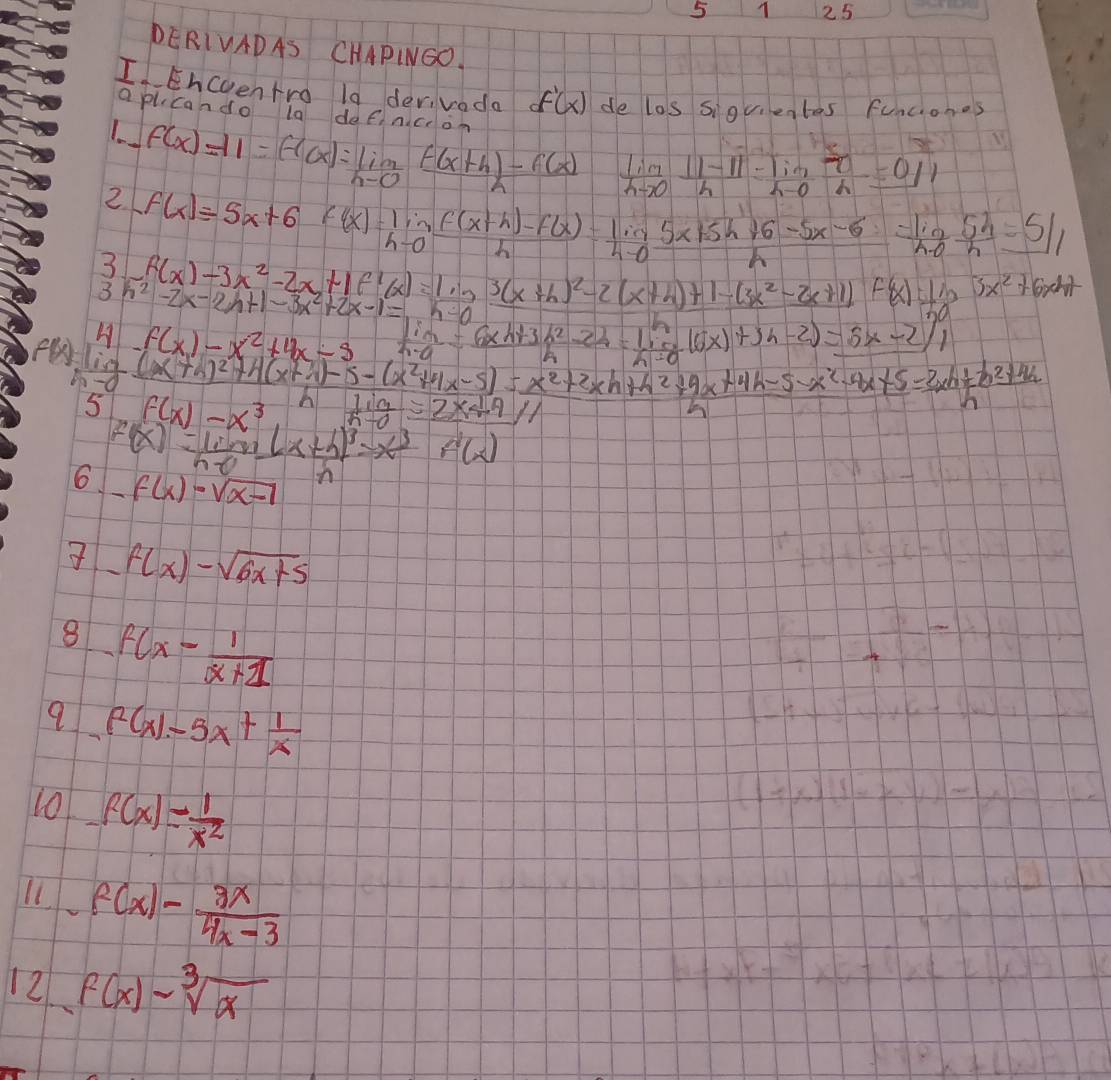 5 1 25
DERIVADAS CHAPINGO.
I.- Encuentra la derivada f'(x) de las siguientes funciones
aplicando la definición
1.- f(x)=11 = f'(x)=lim h→0 f(x+h)-f(x)/h lim h→0 11-11/h = lim h→0 /h = 0//
2.- f(x)=5x+6 f'(x)=lim h→0 f(x+h)-f(x)/h = lim h→0 5x+5h+6-5x-6/h = lim h→0 5h/h = 5//
3.- f(x)-3x²-2x+1 f'(x)=lim h→0 3(x+h)²-2(x+h)+1-(3x²-2x+1)/h f'(x)=lim h→0 3x²+6xh+
3h²-2x-2h+1-3x²+2x-1= lim h→0 = 6xh+3h²-2h/h = lim h→0 (6x)+3h-2)=6x-2//
4.- f(x)-x²+4x-5
f'(x)=lim h→0 (x+h)²+4(x+h)-5-(x²+4x-5)/h = x²+2xh+h²+4x+4h-5-x²-4x+5/h = 2xh+h²+4h/h
lim h→0 = 2x+4//
5.- f(x)-x³
f'(x)=lim h→0 (x+h)³-x³/h f'(x)
6.- f(x)-√x-1
7.- f(x)-√6x+5
8.- f(x-1/x+1
9.- f(x)-5x+1/x
10.- f(x)=1/x²
11.- f(x)-3x/4x-3
12.- f(x)-∛x